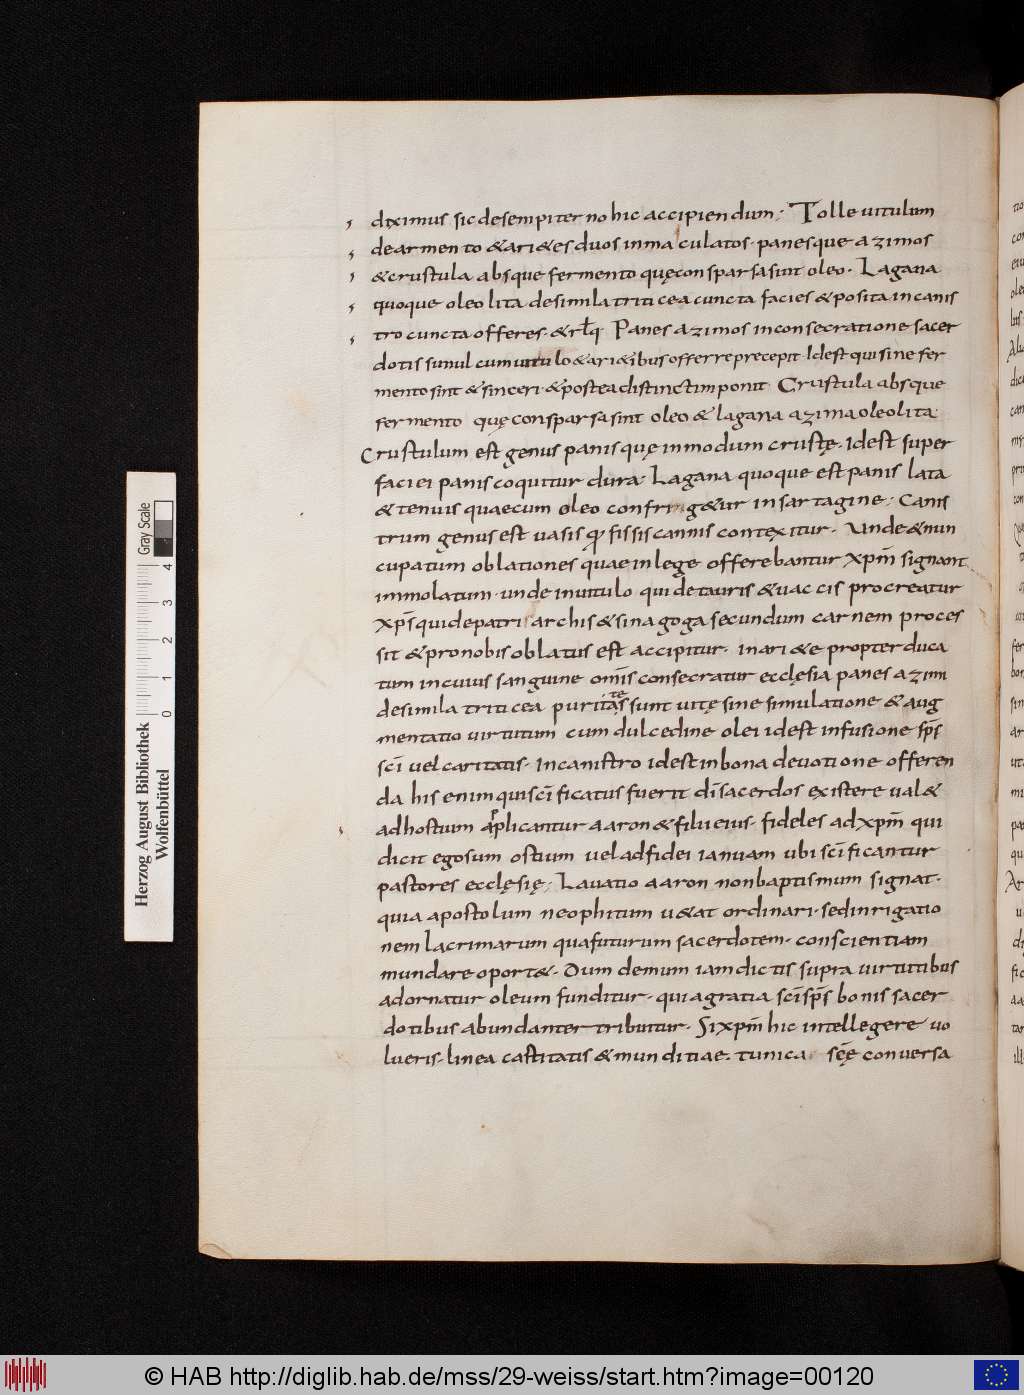 diximus sic de sempiterno hic accipiendum; Tolle uitulum
de armento & ari&es duos inmaculatos · panesque azimos
& crustula absque fermento quę conspar sa sint oleo · Lagana
quoque oleo lita de simila triticea cuncta facies & posita in canis
tro cuncta offeres · & rłq Panes azimos in consecratione sacer
dotis simul cum uitulo & ari&ibus offerre precepit · Id est qui sine fer
mento sint & sinceri · & postea distinctim ponit Crustula absque
fermento quę conspar sa sint oleo & lagana azima oleo lita·
Crustulum est genus panis quę in modum crustę · Id est super
faciei panis coquitur dura; Lagana quoque est panis lata
& tenuis quae cum oleo confring&ur in sartagine; Canis
trum genus est uasis qđ fissis cannis contexitur · Unde & nun
cupatum oblationes quae in lege offerebantur xpm̄ signant
immolatum · unde in uitulo qui de tauris & uaccis procreatur
xps̄ qui de patri archis & sinagoga secundum carnem proces
sit & pro nobis oblatus est accipitur · in ari&e propter duca
tum in cuius sanguine omīs consecratur ecclęsia panes azimi
de simila triticea puritate sunt uitę sine simulatione & aug
mentatio uirtutum cum dulcedine olei id est infusione sp̄s
scī uel caritatis · in canistro id est in bona deuotione offeren
da his enim qui scīficatus fuerit dī sacerdos existere ual&
ad hostium applicantur aaron & filii eius · fideles ad xpm̄ qui
dicit ego sum ostium uel ad fidei ianuam ubi scīficantur
pastores ecclęsię; Lauatio aaron non baptismum signat·
quia apostolum neophitum u&at ordinari · sed inrigatio
nem lacrimarum qua futurum sacerdotem · conscientiam
mundare oport& · Dum demum iam dictis supra uirtutibus
adornatur oleum funditur · quia gratia scī sp̄s bonis sacer
dotibus abundanter tribuitur · Si xpm̄ hic intellegere uo
lueris · linea castitatis & munditiae · tunica sc̄ę conuersa
Herzog August Bibliothek
Wolfenbüttel
0 1 2 3 4
Gray Scale
© HAB http://diglib.hab.de/mss/29-weiss/start.htm?image=00120